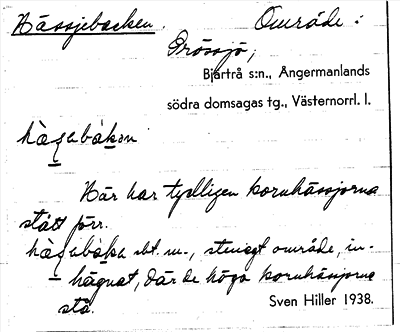 Hässjebacken. Område:
Prässjö,
Bjärtrå s:n., Ångermanlands
södra domsagas tg., Västernorrl. l.
Här har tydligen kornhässjorna
stått förr.
sbt. m., stenigt område, in-
hägnat, där de höga kornhässjorna
stå.
Sven Hiller 1938.